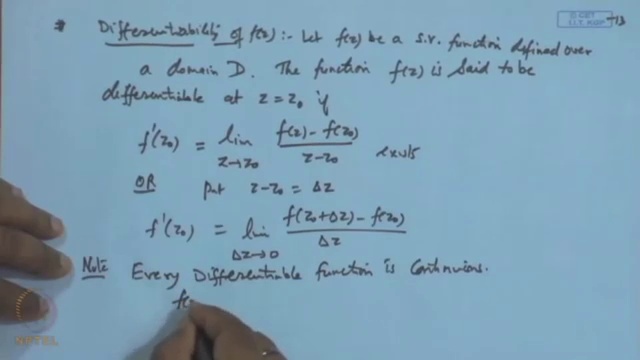 * Differentiability of f(z) :- Let f(z) be a s.v. function defined over
a domain D. The function f(z) is said to be
differentiable at z = z₀ if
f'(z₀) = lim z→z₀ f(z) - f(z₀) / z - z₀ exists
OR put z - z₀ = Δz
f'(z₀) = lim Δz→0 f(z₀+Δz) - f(z₀) / Δz
Note Every Differentiable function is continuous.
f(
© CET
I.I.T. KGP
NPTEL